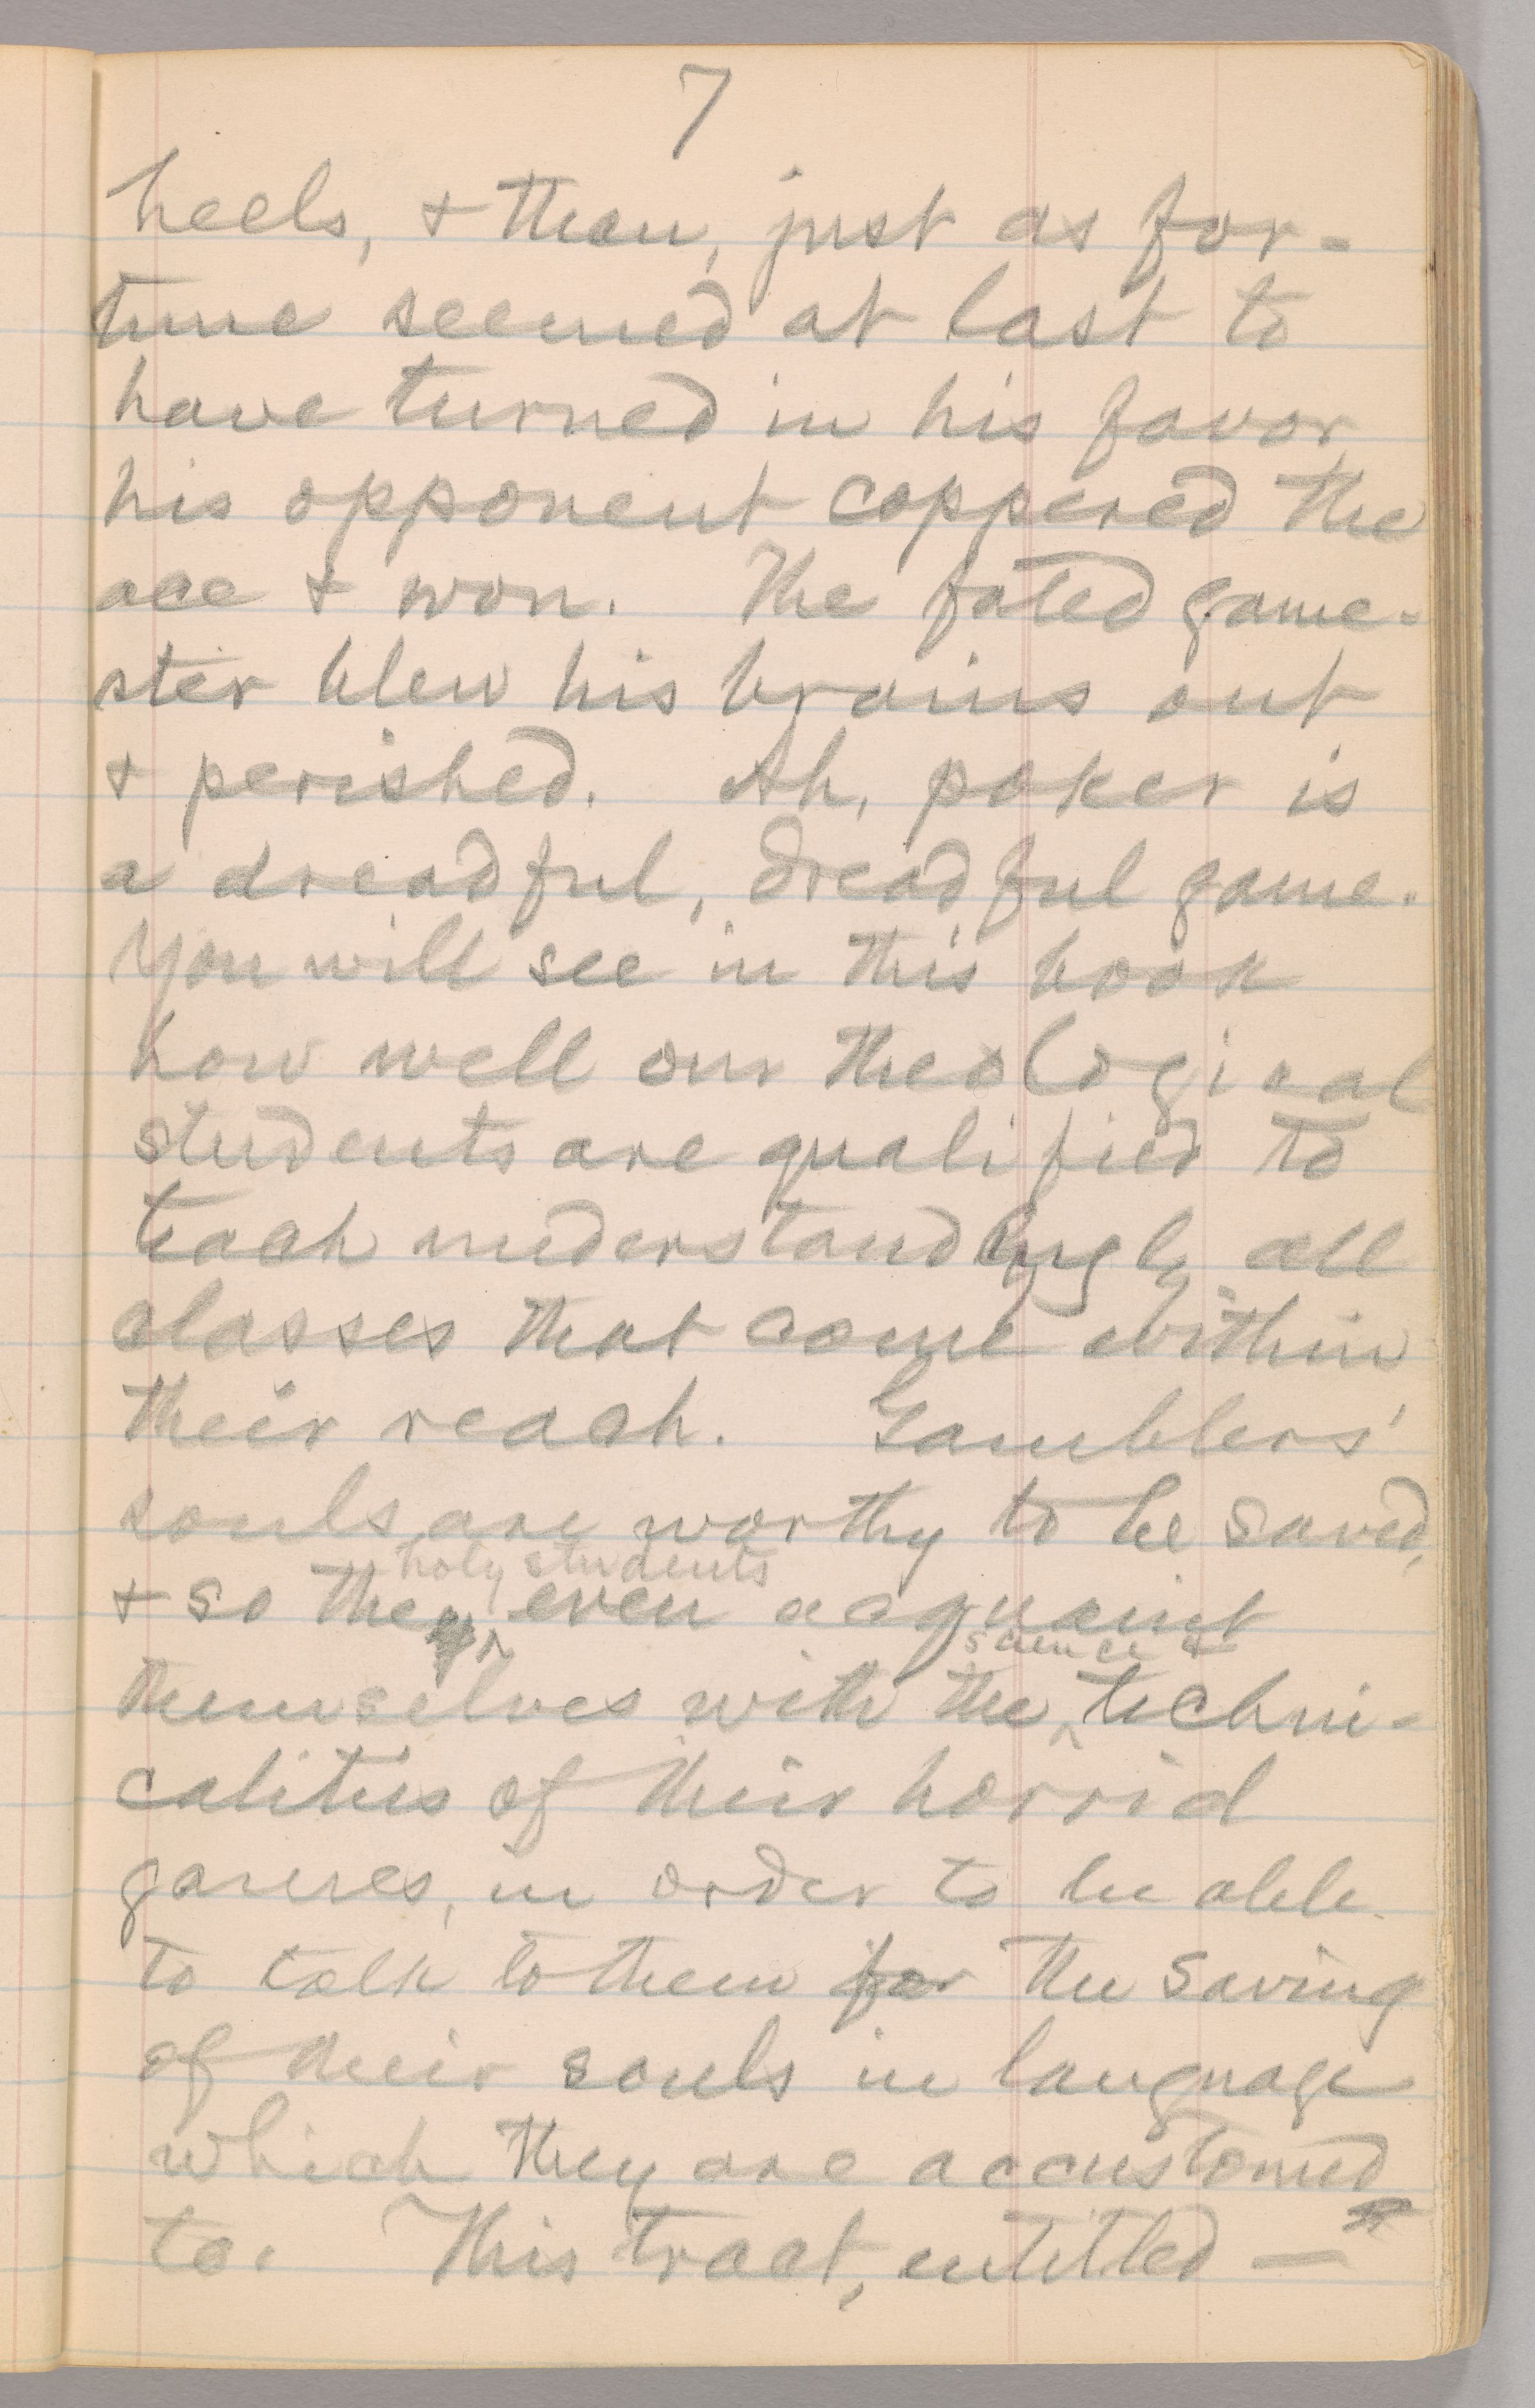 7
heels, & then, just as for-
tune seemed at last to
have turned in his favor,
his opponent coppered the
ace & won. The fated game-
ster blew his brains out
& perished. Ah, poker is
a dreadful, dreadful game.
You will see in this book
how well our theological
students are qualified to
teach understandingly all
classes that come within
their reach. Gamblers'
souls are worthy to be saved,
holy students
& so the even acquaint
science &
themselves with the techni-
calities of their horrid
games, in order to be able
to talk to them for the saving
of their souls in language
which they are accustomed
to. This tract, entitled —